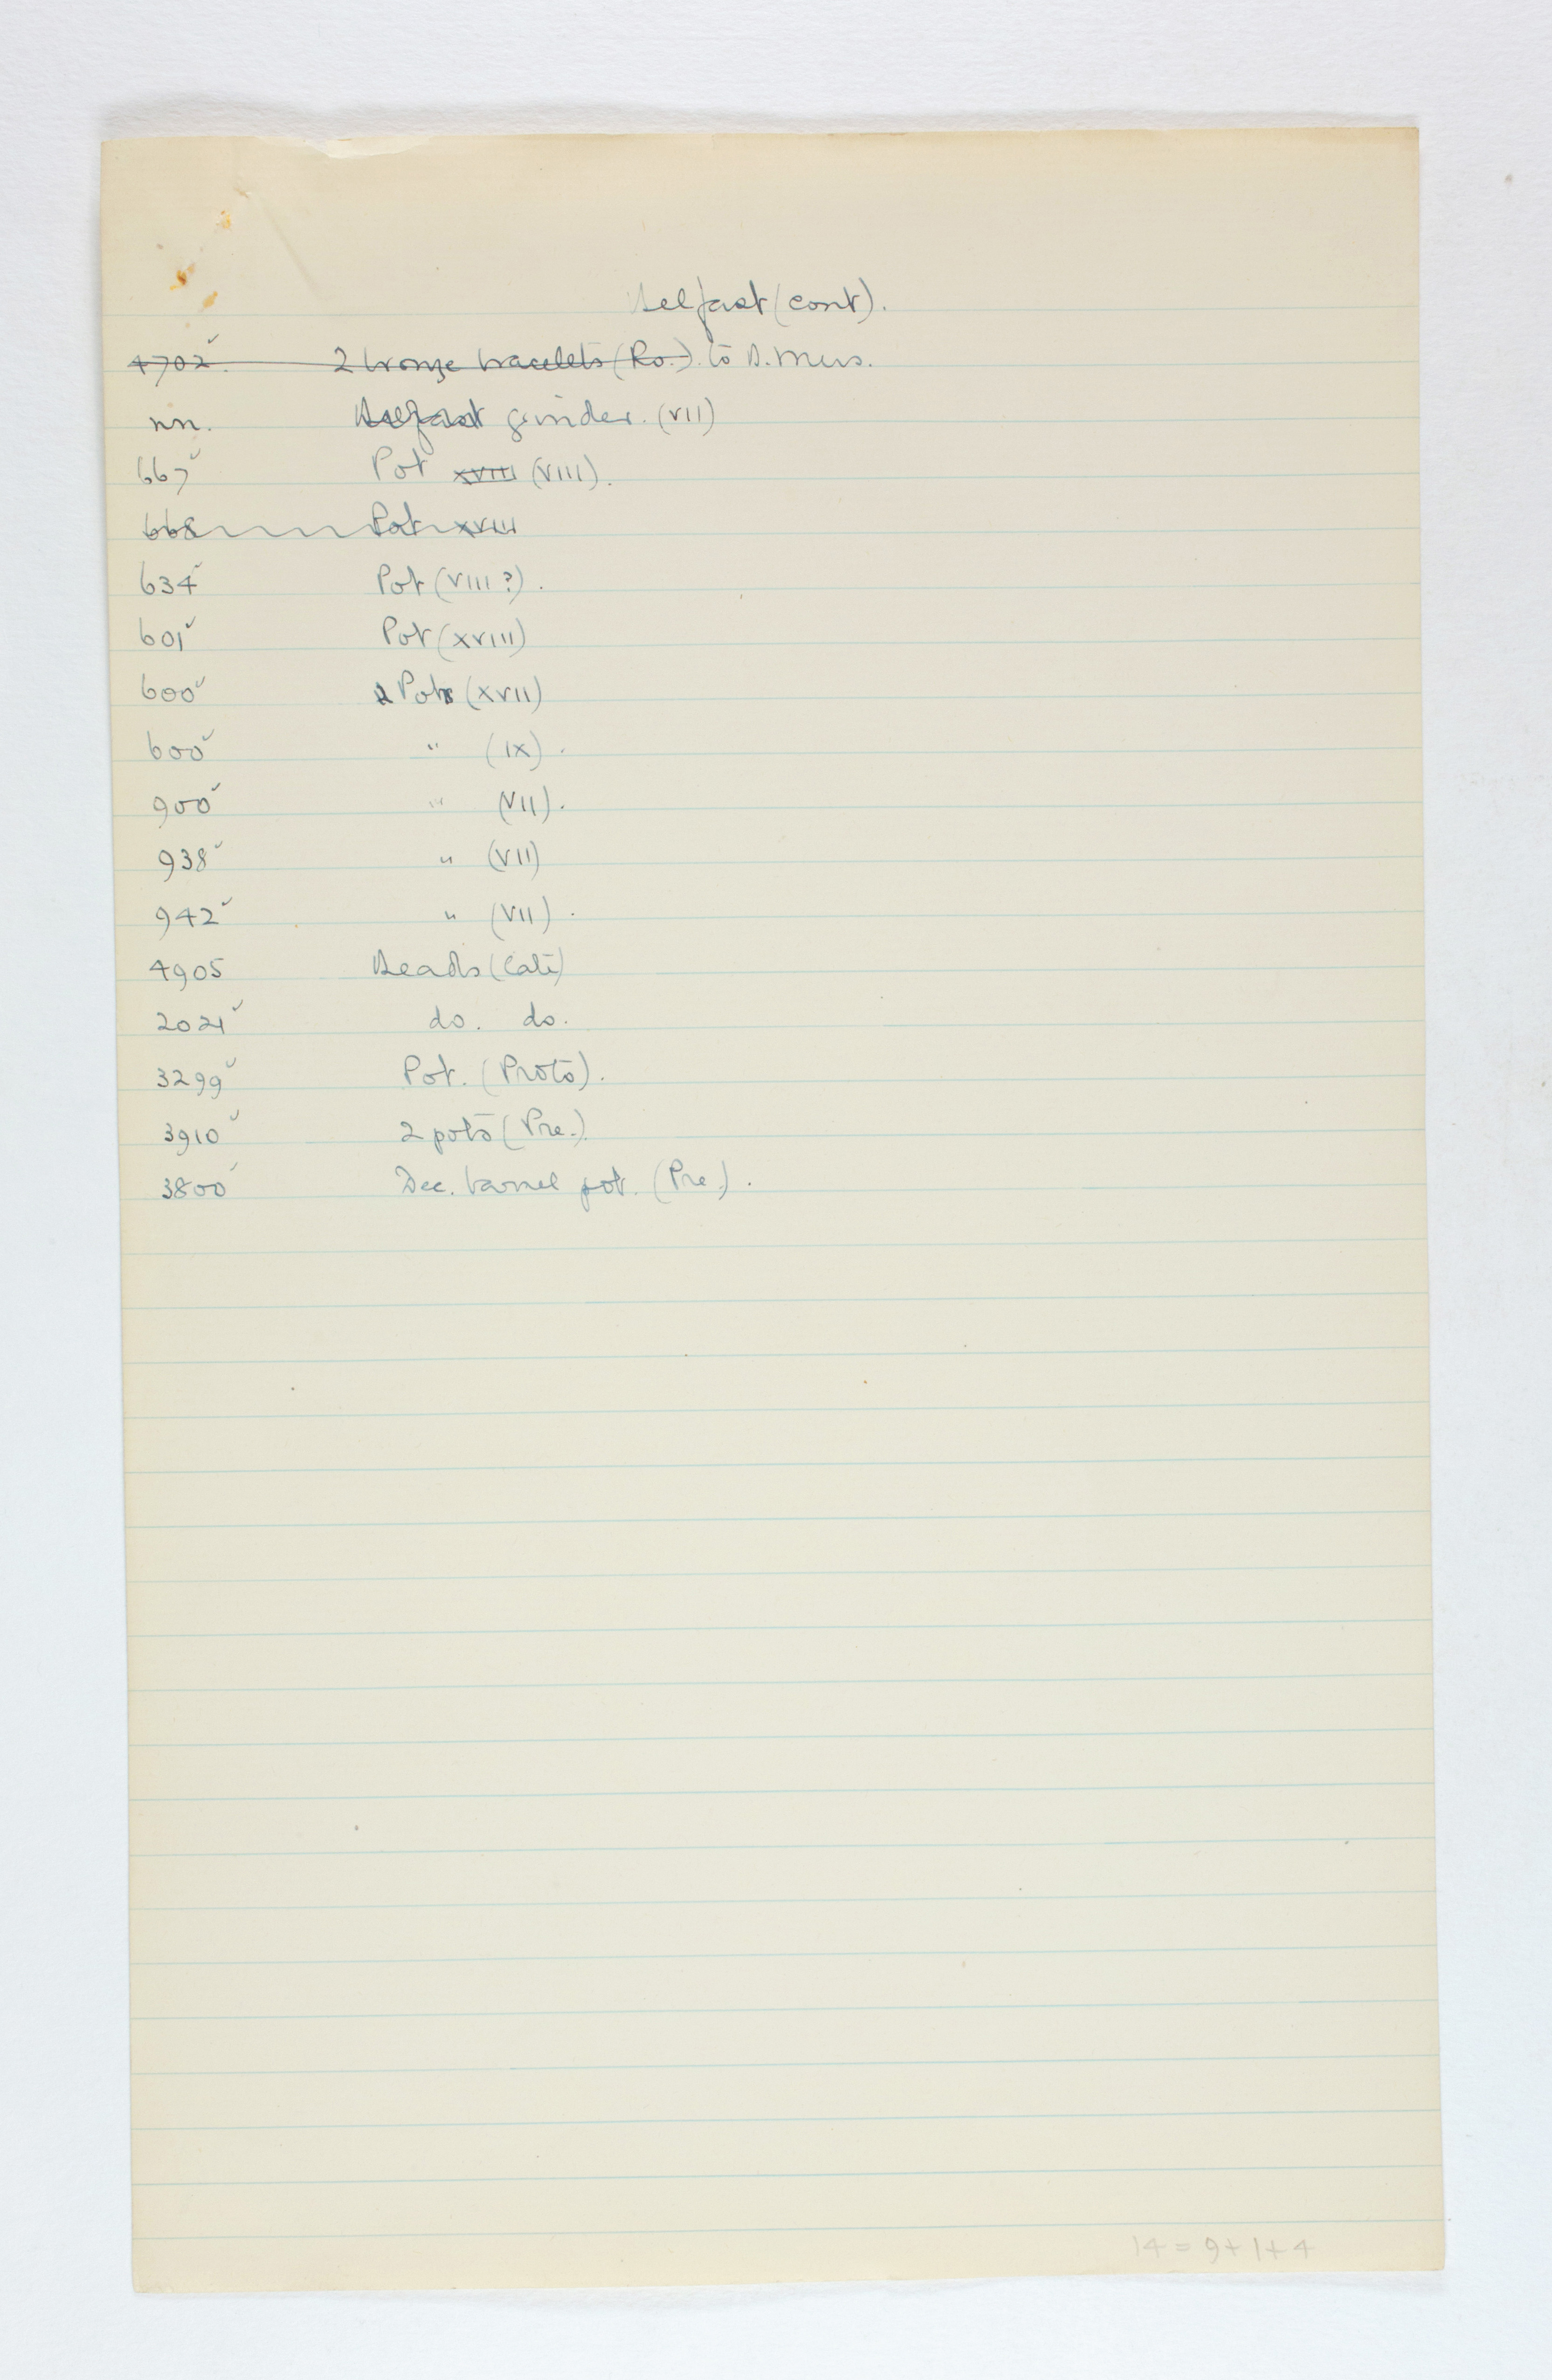 Belfast (cont).
4702 ✓ 2 bronze bracelets (Ro.). to B. Mus.
nn. Belfast grinder. (VII)
667 ✓ Pot XVIII (VIII).
668 Pot XVIII
634 ✓ Pot (VIII?).
601 ✓ Pot (XVIII)
600 ✓ Pot (XVII)
600 ✓ " (IX).
900 ✓ " (VII).
938 ✓ " (VII)
942 ✓ " (VII).
4905 Beads (Late)
2021 ✓ do. do.
3299 ✓ Pot. (Proto).
3910 ✓ 2 pots (Pre.).
3800 ✓ Dec. barrel pot. (Pre.).
14 = 9 + 1 + 4